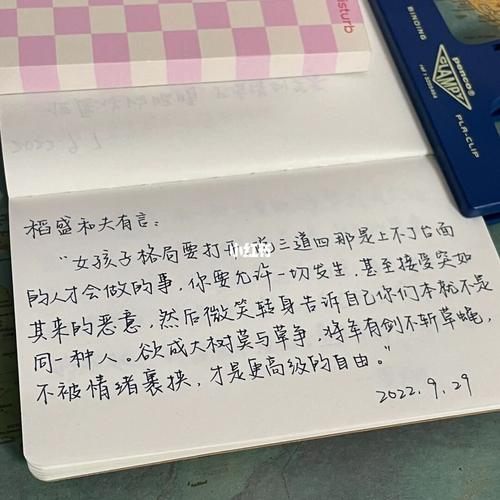 isturb
BINDING
penco®
CLAMPY
PLA-CLIP
2022.9.7
稻盛和夫有言：
“女孩子格局要打开，说三道四那是上不了台面
小红书
的人才会做的事，你要允许一切发生，甚至接受突如
其来的恶意，然后微笑转身告诉自己你们本就不是
同一种人。欲成大树莫与草争，将军有剑不斩草蝇，
不被情绪裹挟，才是更高级的自由。”
2022.9.29